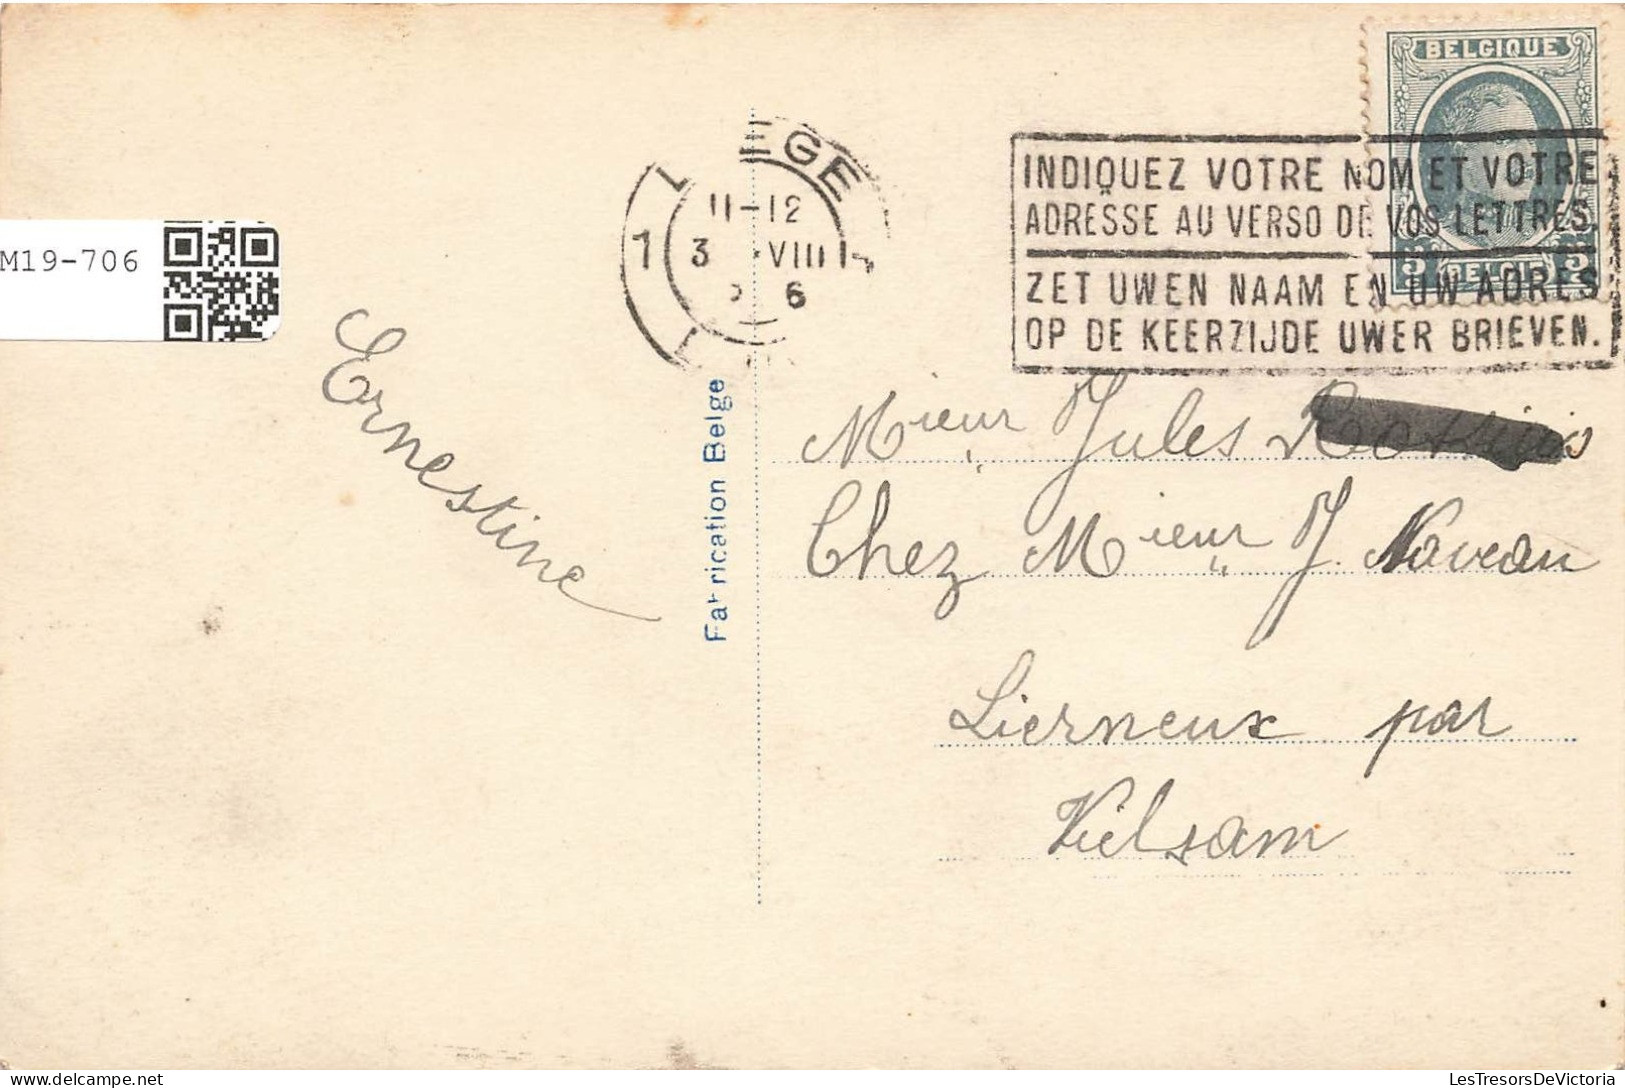 BELGIQUE
LIEGE
11-12
1 3 VIII
6
INDIQUEZ VOTRE NOM ET VOTRE
ADRESSE AU VERSO DE VOS LETTRES.
ZET UWEN NAAM EN UW ADRES
OP DE KEERZIJDE UWER BRIEVEN.
5 BELGIË 5
M19-706
Ernestine
Fabrication Belge
Mieur Jules
Chez Mieur J. Naveau
Lierneux par
Vielsam
LesTresorsDeVictoria